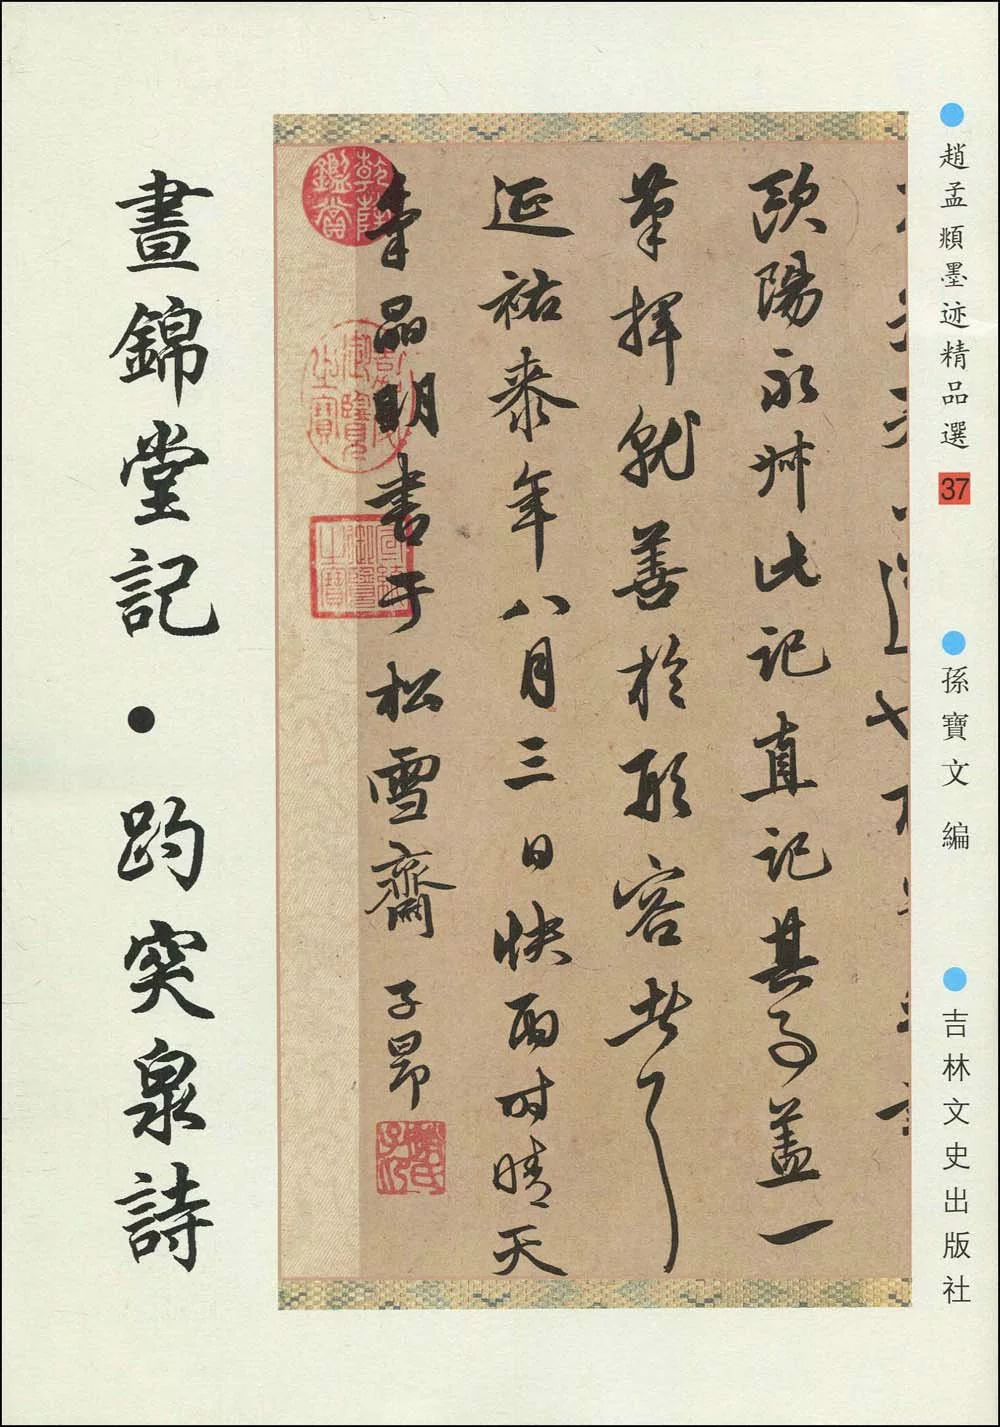 趙孟頫墨迹精品選 37
孫寶文 編
吉林文史出版社
歐陽永叔此記直記其事蓋一
筆揮就善於形容者
延祐柒年八月三日快雨时晴天
氣晶明書于松雪齋 子昂
乾隆鑑賞
嘉慶御覽之寶
宣統御覽之寶
趙氏子昂
晝錦堂記・趵突泉詩